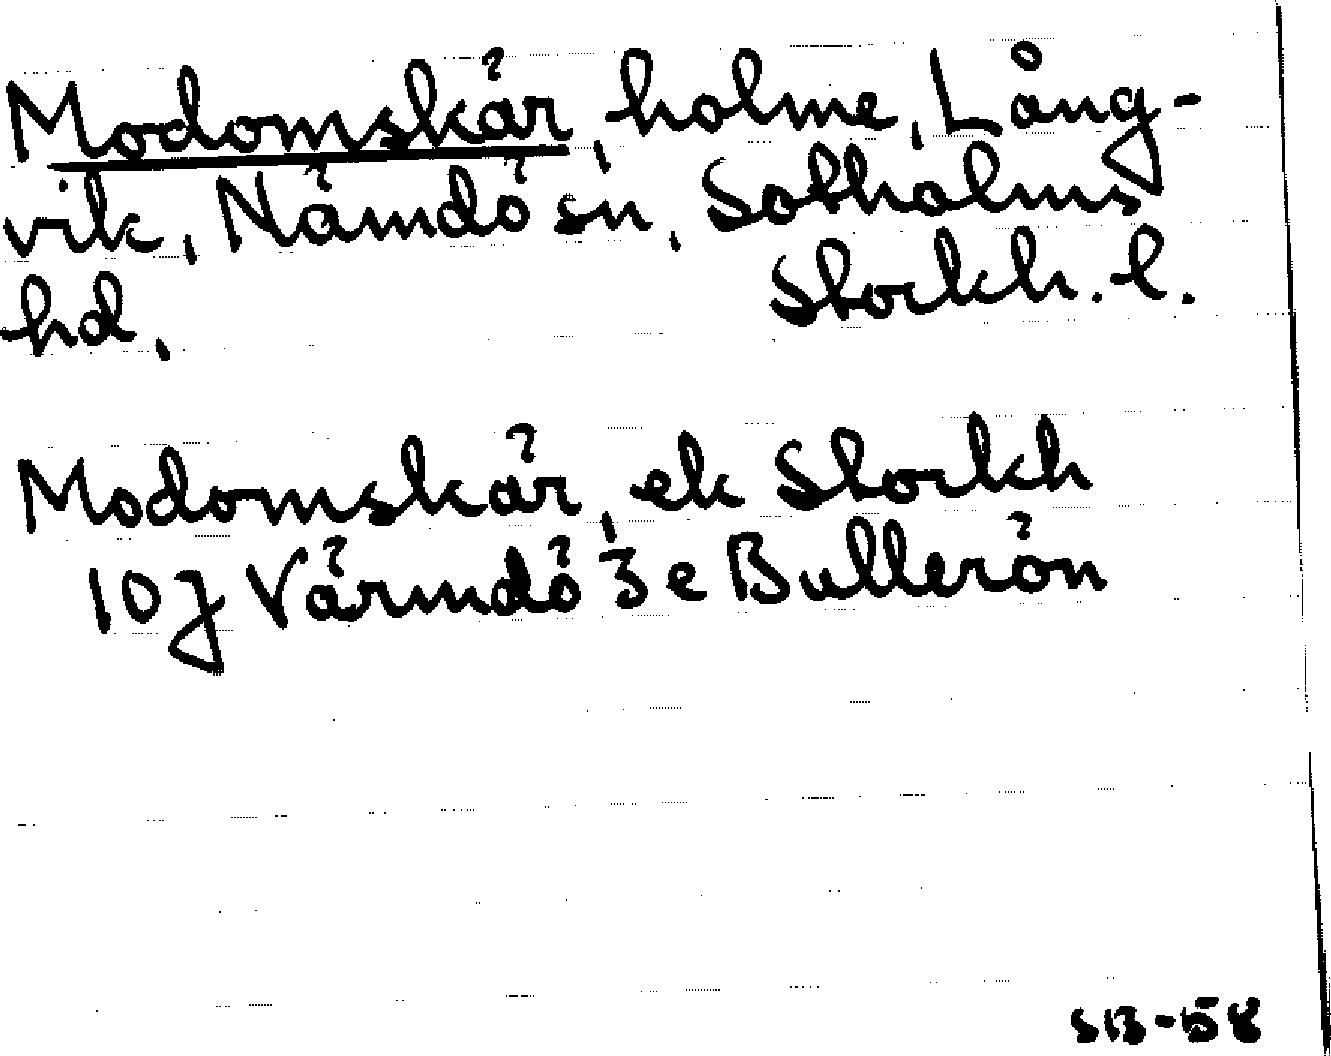 Modomskär, holme, Lång-
vik, Nämdö sn, Sotholms
hd, Stockh. l.
Modomskär, ek Stockh
10J Värmdö 3e Bullerön
SB-58